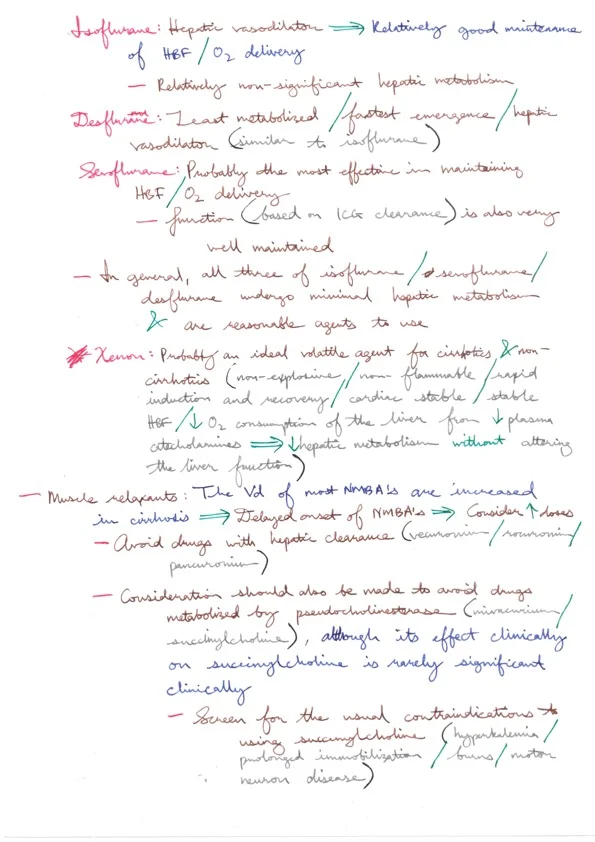 Isoflurane: Hepatic vasodilator ⇒ Relatively good maintenance
of HBF / O2 delivery
— Relatively non-significant hepatic metabolism
Desflurane: Least metabolized / fastest emergence / hepatic
vasodilator (similar to isoflurane)
Sevoflurane: Probably the most effective in maintaining
HBF / O2 delivery
— function (based on ICG clearance) is also very
well maintained
— In general, all three of isoflurane / sevoflurane /
desflurane undergo minimal hepatic metabolism
& are reasonable agents to use
* Xenon: Probably an ideal volatile agent for cirrhotics & non-
cirrhotics (non-explosive / non-flammable / rapid
induction and recovery / cardiac stable / stable
HBF / ↓ O2 consumption of the liver from ↓ plasma
catecholamines ⇒ ↓ hepatic metabolism without altering
the liver function)
— Muscle relaxants: The Vd of most NMBA's are increased
in cirrhosis ⇒ Delayed onset of NMBA's ⇒ Consider ↑ doses
— Avoid drugs with hepatic clearance (vecuronium / rocuronium /
pancuronium)
— Consideration should also be made to avoid drugs
metabolized by pseudocholinesterase (mivacurium /
succinylcholine), although its effect clinically
on succinylcholine is rarely significant
clinically
— Screen for the usual contraindications to
using succinylcholine (hyperkalemia /
prolonged immobilization / burns / motor
neuron disease)